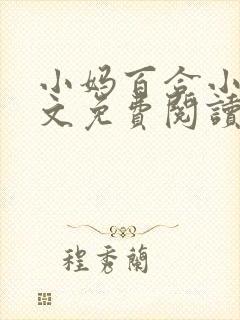 小妈百合小
文免費閱讀
程秀蘭